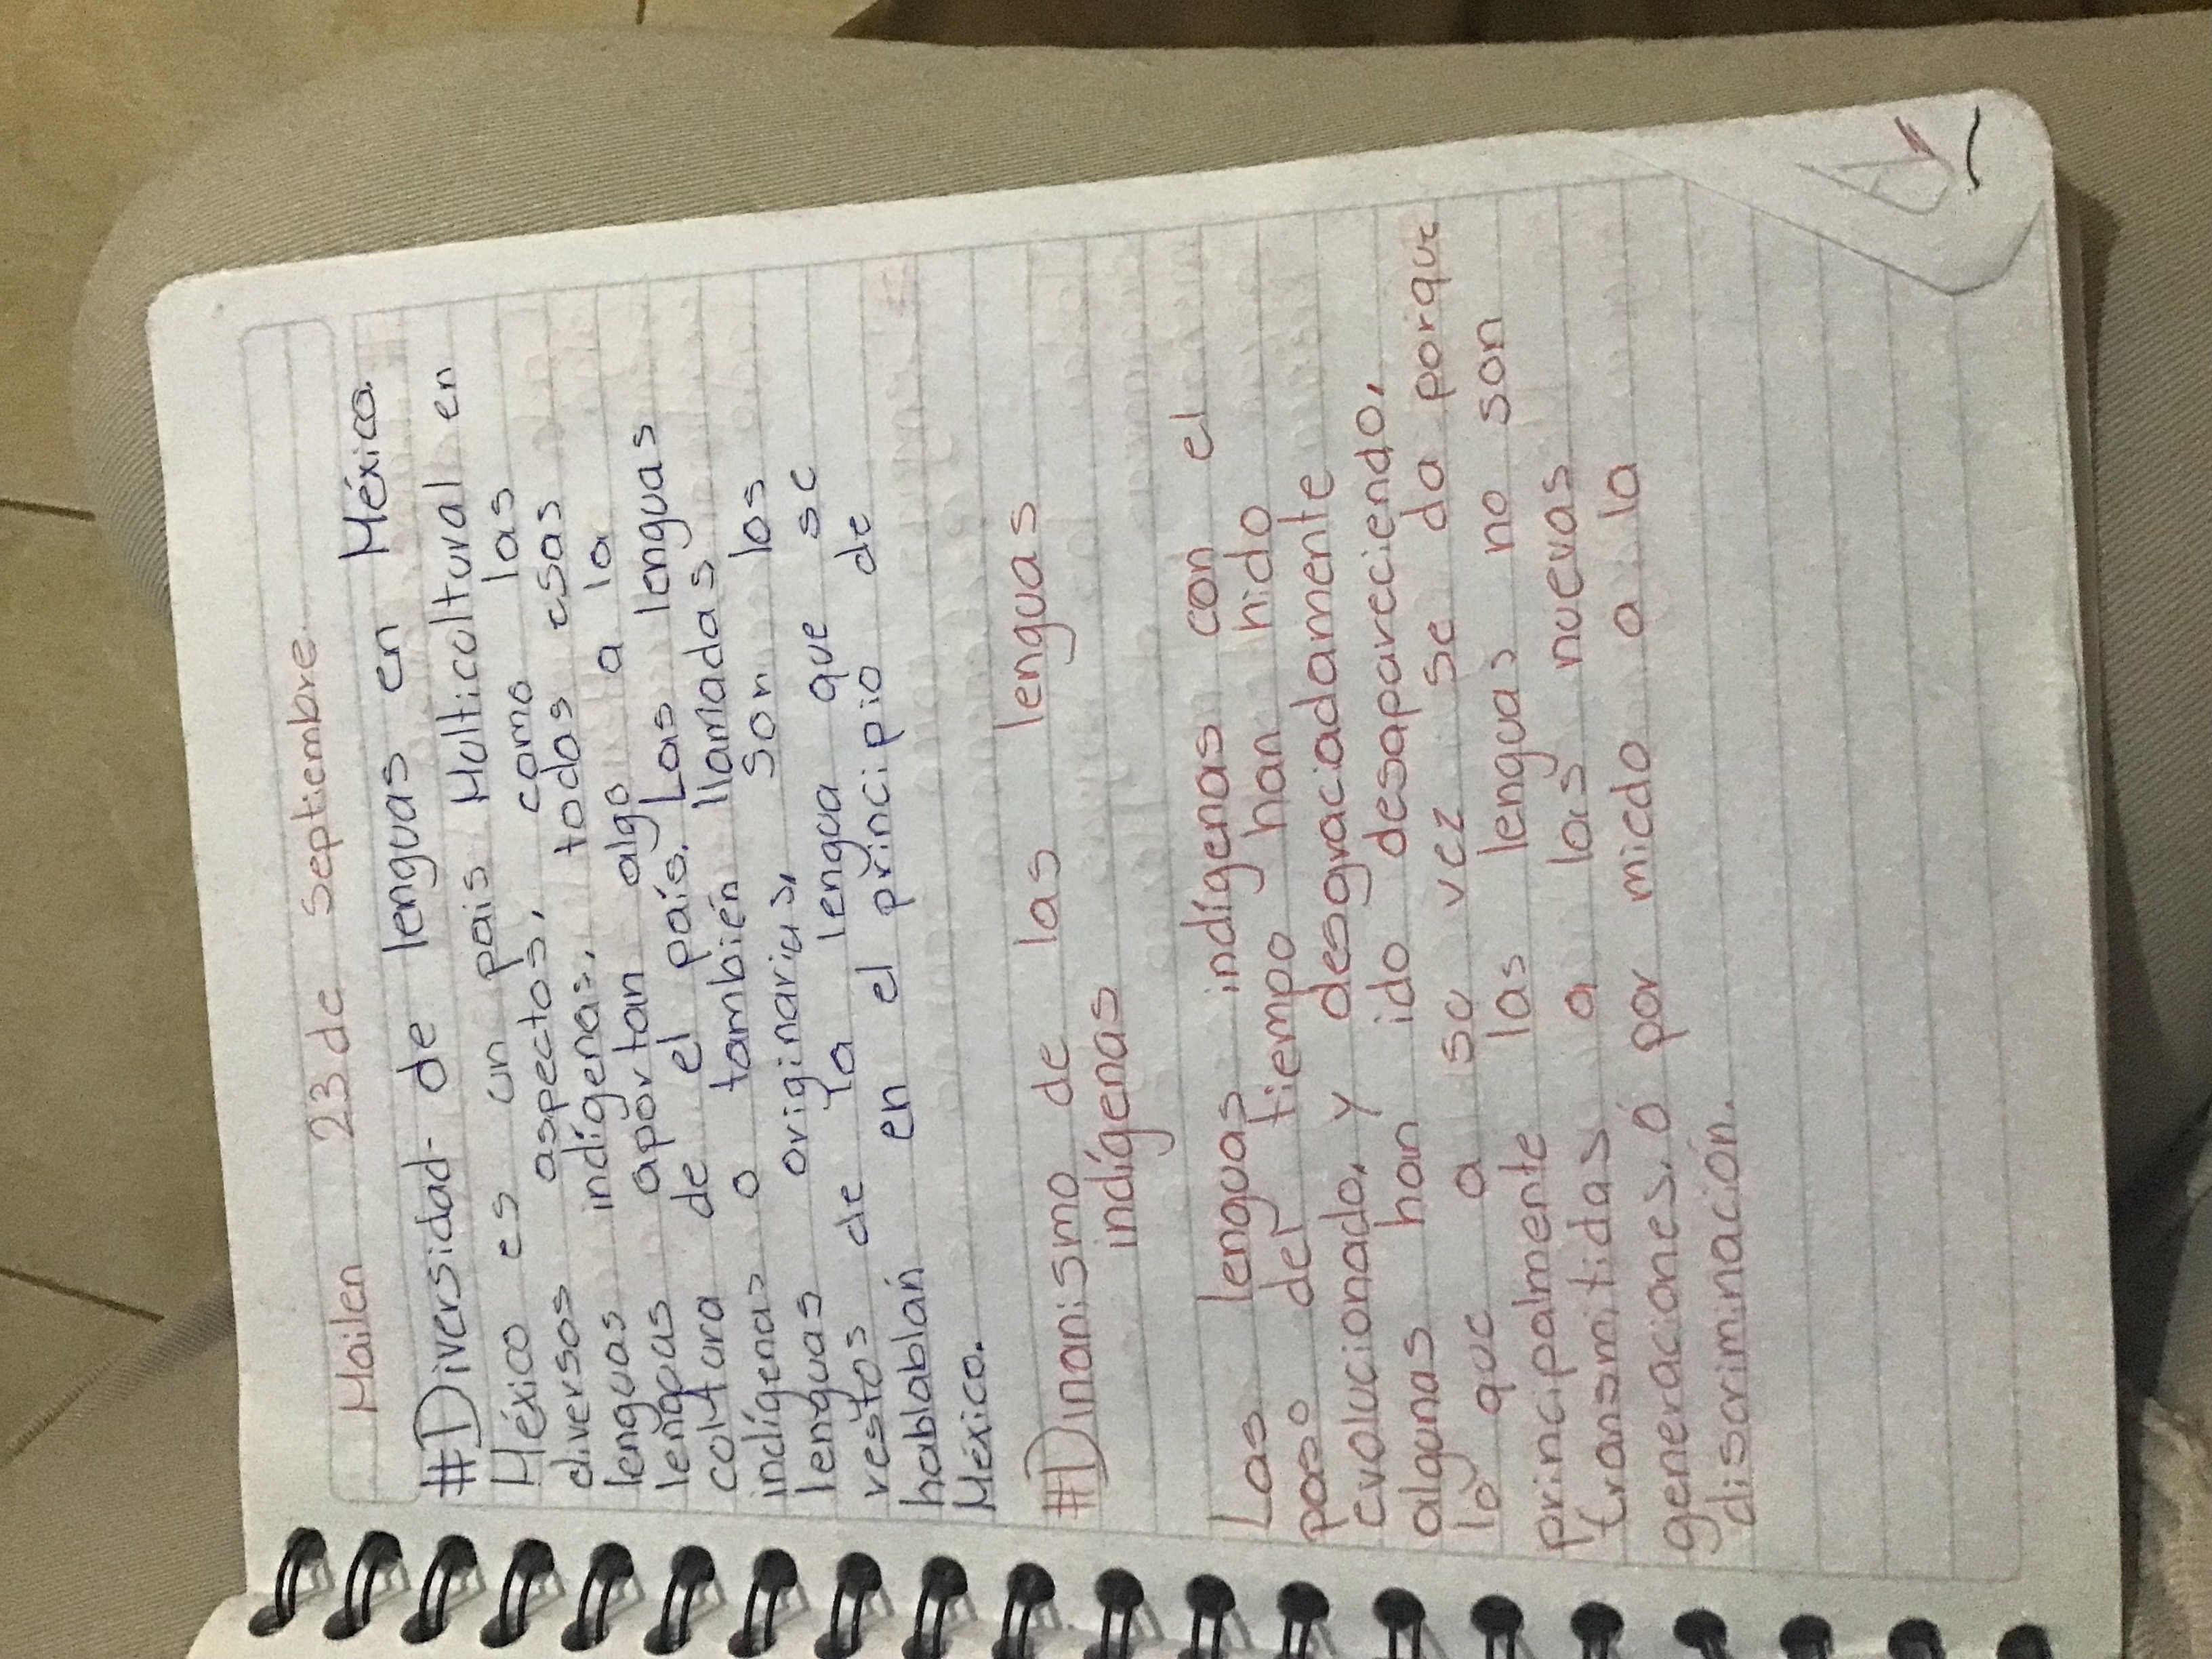 Mailen 23 de Septiembre.
#Diversidad- de lenguas en México.
México es un país Multicultural en
diversos aspectos, como las
lenguas indígenas, todas esas
lenguas aportan algo a la
cultura de el país. Las lenguas
indígenas o también llamadas
lenguas originarias, son los
restos de la lengua que se
hablablan en el principio de
México.
#Dinanismo de las lenguas
indígenas
Las lenguas indígenas con el
paso del tiempo han hido
evolucionado, y desgraciadamente
algunas han ido desapareciendo,
lo que a su vez se da porque
principalmente las lenguas no son
transmitidas a las nuevas
generaciones, ó por miedo a la
discriminación.